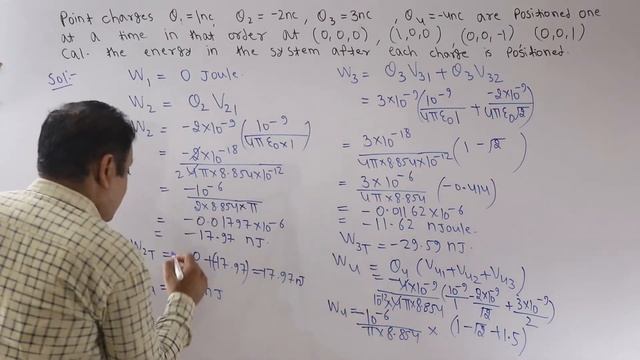 Point charges Q1 = 1nc, Q2 = -2nc, Q3 = 3nc, Q4 = -4nc are positioned one
at a time in that order at (0,0,0), (1,0,0) (0,0,-1) (0,0,1)
Cal. the energy in the system after each charge is positioned.
Sol:-
W1 = 0 Joule.
W2 = Q2 V21
W2 = -2×10^-9 (10^-9/4πε0×1)
= -2×10^-18/2 4π×8.854×10^-12
= -10^-6/2×8.854×π
= -0.01797×10^-6
= -17.97 nJ.
W2T = 0+(-17.97) = 17.97nJ
= nJ
W3 = Q3 V31 + Q3 V32
= 3×10^-9 (10^-9/4πε0 1 + -2×10^-9/4πε0√2)
= 3×10^-18/4π×8.854×10^-12 (1-√2)
= 3×10^-6/4π×8.854 (-0.414)
= -0.01162×10^-6
= -11.62 nJ.
W3T = -29.59 nJ.
W4 = Q4 (V41+V42+V43)
= -4×10^-9/10^-12 4π×8.854 (10^-9/1 - 2×10^-9/√2 + 3×10^-9/2)
W4 = -10^-6/π×8.854 × (1-√2+1.5)